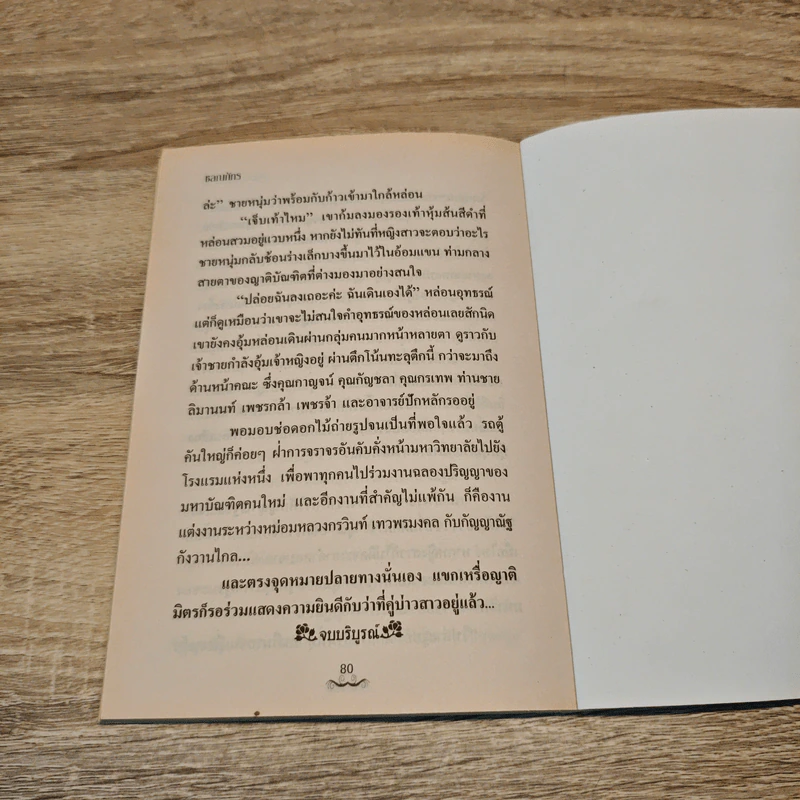 ชลาบภัทร
ล่ะ” ชายหนุ่มว่าพร้อมกับก้าวเข้ามาใกล้หล่อน
“เจ็บเท้าไหม” เขาก้มลงมองรองเท้าหุ้มส้นสีดำที่
หล่อนสวมอยู่แวบหนึ่ง หากยังไม่ทันที่หญิงสาวจะตอบว่าอะไร
ชายหนุ่มกลับช้อนร่างเล็กบางขึ้นมาไว้ในอ้อมแขน ท่ามกลาง
สายตาของญาติบัณฑิตที่ต่างมองมาอย่างสนใจ
“ปล่อยฉันลงเถอะค่ะ ฉันเดินเองได้” หล่อนอุทธรณ์
แต่ก็ดูเหมือนว่าเขาจะไม่สนใจคำอุทธรณ์ของหล่อนเลยสักนิด
เขายังคงอุ้มหล่อนเดินผ่านกลุ่มคนมากหน้าหลายตา ดูราวกับ
เจ้าชายกำลังอุ้มเจ้าหญิงอยู่ ผ่านตึกโน้นทะลุตึกนี้ กว่าจะมาถึง
ด้านหน้าคณะ ซึ่งคุณกาญจน์ คุณกัญชลา คุณกรเทพ ท่านชาย
ลิมานนท์ เพชรกล้า เพชรจ้า และอาจารย์ปักหลักรออยู่
พอมอบช่อดอกไม้ถ่ายรูปจนเป็นที่พอใจแล้ว รถตู้
คันใหญ่ก็ค่อยๆ ฝ่าการจราจรอันคับคั่งหน้ามหาวิทยาลัยไปยัง
โรงแรมแห่งหนึ่ง เพื่อพาทุกคนไปร่วมงานฉลองปริญญาของ
มหาบัณฑิตคนใหม่ และอีกงานที่สำคัญไม่แพ้กัน ก็คืองาน
แต่งงานระหว่างหม่อมหลวงกรวินท์ เทวพรมงคล กับกัญญาณัฐ
กังวานไกล...
และตรงจุดหมายปลายทางนั่นเอง แขกเหรื่อญาติ
มิตรก็รอร่วมแสดงความยินดีกับว่าที่คู่บ่าวสาวอยู่แล้ว...
จบบริบูรณ์
80